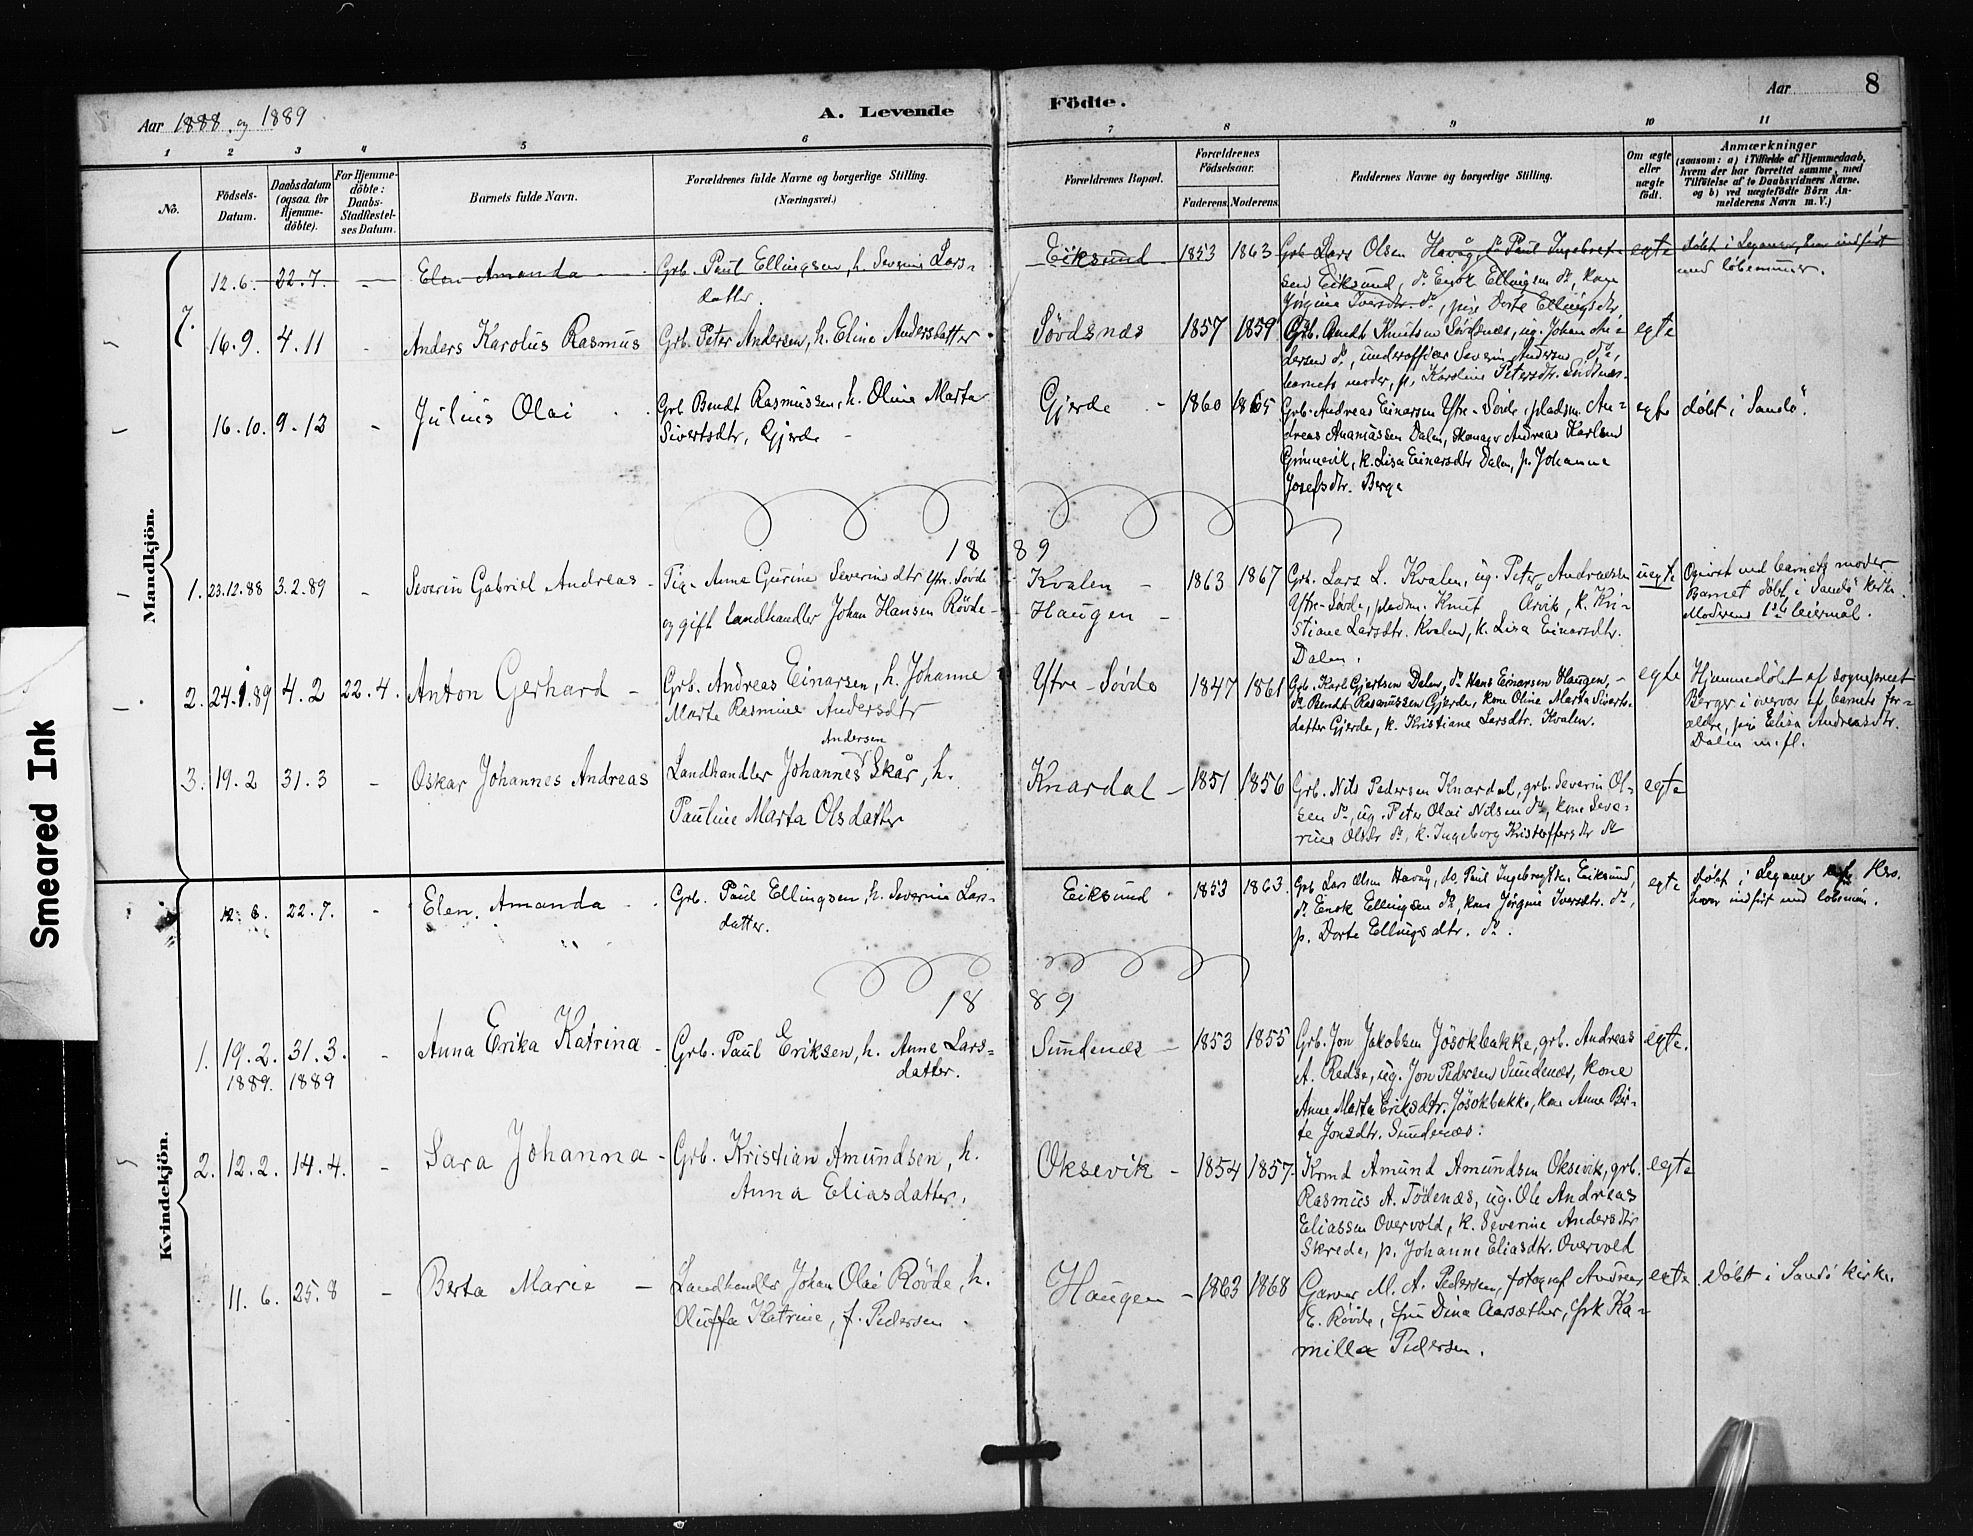 Smeared Ink
Aar 1888 og 1889
A. Levende Födte.
Aar 8
1 2 3 4 5 6 7 8 9 10 11
No.
Födsels-Datum.
Daabsdatum (ogsaa for Hjemme-döbte).
For Hjemme-döbte: Daabs-Stadfæstel-ses Datum.
Barnets fulde Navn.
Forældrenes fulde Navne og borgerlige Stilling.
(Næringsvei.)
Forældrenes Bopæl.
Forældrenes Födselsaar.
Faderens. Moderens.
Faddernes Navne og borgerlige Stilling.
Om ægte eller uægte födt.
Anmærkninger
(saasom: a) i Tilfælde af Hjemmedaab,
hvem der har forrettet samme, med
Tilföielse af to Daabsvidners Navne,
og b) ved uægtefödte Börn An-
melderens Navn m. V.)
Mandkjön.
12.6. 22.7. - Elen Amanda
Grb. Paul Ellingsen, h. Severine Lars-
datter.
Eiksund 1853 1863
Grb. Lars Olsen Havåg, do Paul Ingebrigt-
sen Eiksund, do Enok Ellingsen do, kone
Jørgine Iversdtr. do, pige Dorte Ellingsdtr.
egte
døbt i Leganger, her indført
med løbenummer.
7. 16.9. 4.11 - Anders Karolus Rasmus
Grb. Peter Andersen, h. Eline Andersdatter.
Sövdsnæs 1857 1859
Grb. Bendt Knutsen Sövdsnæs, ug. Johan An-
dersen do, underofficer Severin Andersen do,
barnets moder, p. Karoline Petersdtr. Södsnæs.
egte
16.10. 9.12 - Julius Olai
Grb Bendt Rasmussen, h. Oline Marta
Sivertsdtr, Gjerde -
Gjerde - 1860 1865
Grb. Andreas Einarsen Ytre-Sövde, pladsm. An-
dreas Ananiassen Dalen, skomager Andreas Karlsen
Grimnevik, k. Lisa Einarsdtr Dalen, p. Johanne
Josefsdtr. Berge
egte døbt i Sandö.
18 89
1. 23.12.88 3.2.89 - Severin Gabriel Andreas -
Pige Anne Gurine Severinsdtr Ytre. Sövde
og gift Landhandler Johan Hansen Rövde -
Kvalen -
Haugen -
1863 1867
Grb. Lars L. Kvalen, ug. Peter Andreassen
Ytre-Sövde, pladsm. Knut Arvik, k. Kri-
stiane Larsdtr. Kvalen, k. Lisa Einarsdtr.
Dalen.
uegte
Opgivet ved barnets moder
Barnet døbt i Sandö kirke.
Moderens 1ste leiermål.
2. 24.1.89 4.2 22.4. Anton Gerhard -
Grb. Andreas Einarsen, h. Johanne
Marte Rasmine Andersdtr
Ytre-Sövde 1847 1861
Grb. Karl Gjertsen Dalen, do Hans Einarsen Haugen, -
do Bendt Rasmussen Gjerde, kone Oline Marta Siverts-
datter Gjerde, k. Kristiane Larsdtr. Kvalen.
egte
Hjemmedøbt af sognepræst
Berger i overvær af barnets for-
ældre, pige Elisa Andreasdtr.
Dalen m. fl.
3. 19.2 31.3 - Oskar Johannes Andreas
Andersen
Landhandler Johannes Skår, h.
Pauline Marta Olsdatter
Knardal - 1851 1856
Grb. Nils Pedersen Knardal, grb. Severin Ol-
sen do, ug. Peter Olai Nilsen do, kone Seve-
rine Olsdtr do, k. Ingeborg Kristoffersdtr do
egte
Kvindekjön.
12.6. 22.7. - Elen Amanda
Grb. Paul Ellingsen, h. Severine Lars-
datter.
Eiksund 1853 1863.
Grb Lars Olsen Havåg, do. Paul Ingebrigtsen Eiksund,
do Enok Ellingsen do, kone Jørgine Iversdtr. do,
p. Dorte Ellingsdtr. do.
egte
døbt i Leganger
indført med løbenum.
18 89
1. 19.2. 31.3. - Anna Erika Katrina
1889. 1889
Grb. Paul Eriksen, h. Anne Lars-
datter.
Sundenæs - 1853 1855
Grb. Jon Jakobsen Jösokbakke, grb. Andreas
A. Redse, ug. Jon Pedersen Sundenæs, kone
Anne Marta Eriksdtr. Jösokbakke, kone Anne Ber-
te Jonsdtr. Sundenæs.
egte.
2. 12.2. 14.4. - Sara Johanna -
Grb. Kristian Amundsen, h.
Anna Eliasdatter.
Oksevik - 1854 1857.
Kvmd Amund Amundsen Oksevik, grb.
Rasmus A. Tödenæs, ug. Ole Andreas
Eliassen Overvold, k. Severine Andersdtr
Skrede, p. Johanne Eliasdtr. Overvold
egte
11.6. 25.8 - Berta Marie -
Landhandler Johan Olai Rövde, h.
Oluffa Katrine, f. Pedersen.
Haugen - 1863 1868
Garver M. A. Pedersen, fotograf Andreas
E. Rövde, fru Dina Aarsæther, frk Ka-
milla Pedersen.
egte. Döbt i Sandö kirke.